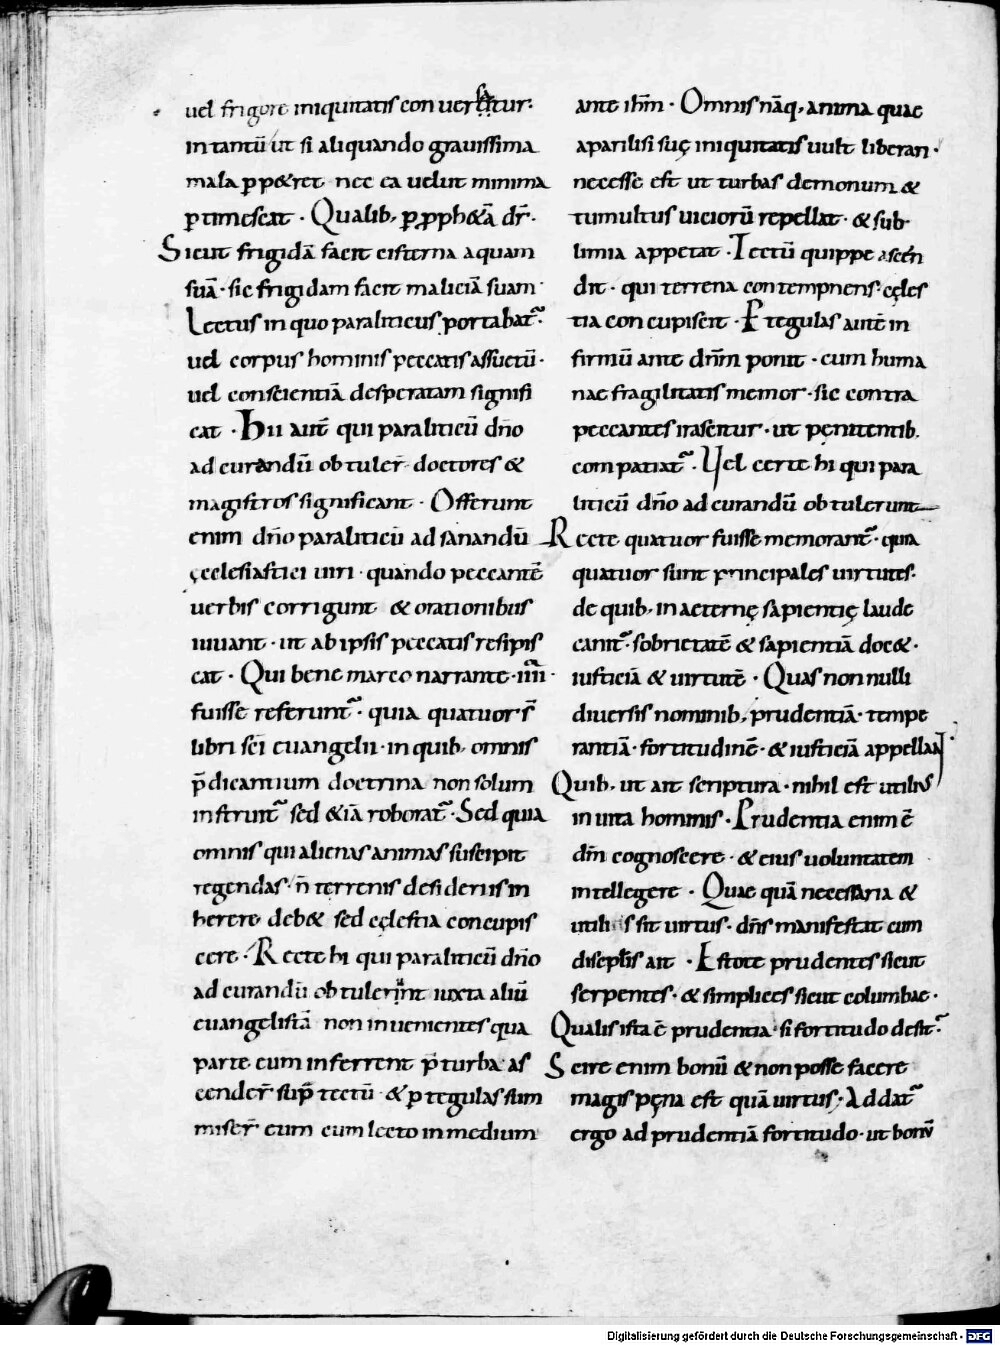 uel frigore iniquitatis con uersatur.
intantū ut si aliquando grauissima
mala ꝑpetret nec ea uelut minima
ꝑtimescat · Qualib; ꝑ ꝓph&ā dr̄ ·
Sicut frigidā facit cisterna aquam
suā · sic frigidam facit maliciā suam
Lectus in quo paraliticus portabat᷑ ·
uel corpus hominis peccatis assuetū ·
uel conscientiā desperatam signifi
cat · Hii aut̄ qui paraliticū dn̄o
ad curandū obtuler̄ doctores &
magistros significant · Offerunt
enim dn̄o paraliticū ad sanandū
ęcclesiastici uiri · quando peccantē
uerbis corrigunt & orationibus
iuuant · ut ab ipsis peccatis resipis
cat · Qui bene marco narrante · iiii ·
fuisse referunt᷑ · quia quatuor s̄
libri sc̄i euangelii · in quib; omnis
p̄dicantium doctrina non solum
instruit᷑ sed &iā roborat᷑ · Sed quia
omnis qui alienas animas suscipit
regendas · n̄ terrenis desideriis in
herere deb& sed cęlestia concupis
cere · Recte hi qui paraliticū dn̄o
ad curandū obtulerunt iuxta aliū
euangelistā non inuenientes qua
parte eum inferrent p̄ turba · as
cender̄ sup̄ tectū · & ꝑ tegulas sum
miser̄ eum cum lecto in medium
ante ih̄m · Omnis nāq; anima quae
a paralisi suę iniquitatis uult liberari ·
necesse est ut turbas demonum &
tumultus uiciorū repellat · & sub
limia appetat · Tectū quippe ascen
dit · qui terrena contempnens · cęles
tia concupiscit · Et tegulas autē in
firmū ante dn̄m ponit · cum huma
nae fragilitatis memor · sic contra
peccantes irascitur · ut pęnitentib;
compatiat᷑ · Vel certe hi qui para
liticū dn̄o ad curandū obtulerunt
Recte quatuor fuisse memorant᷑ · quia
quatuor sunt principales uirtutes ·
de quib; in aeternę sapientię laude
canit᷑ · sobrietatē & sapientiā doc& ·
iusticiā & uirtutē · Quas non nulli
diuersis nominib; prudentiā · tempe
rantiā · fortitudinē · & iusticiā appellant ·
Quib; ut ait scriptura · nihil est utilius
in uita hominis · Prudentia enim ē
dm̄ cognoscere · & eius uoluntatem
intellegere · Quae quā necessaria &
utilis sit uirtus · dn̄s manifestat cum
discipl̄is ait · Estote prudentes sicut
serpentes · & simplices sicut columbae ·
Qualis ista ē prudentia · si fortitudo desit᷑
Scire enim bonū & non posse facere
magis pęna est quā uirtus · Addat᷑
ergo ad prudentiā fortitudo · ut bonū
Digitalisierung gefördert durch die Deutsche Forschungsgemeinschaft - DFG